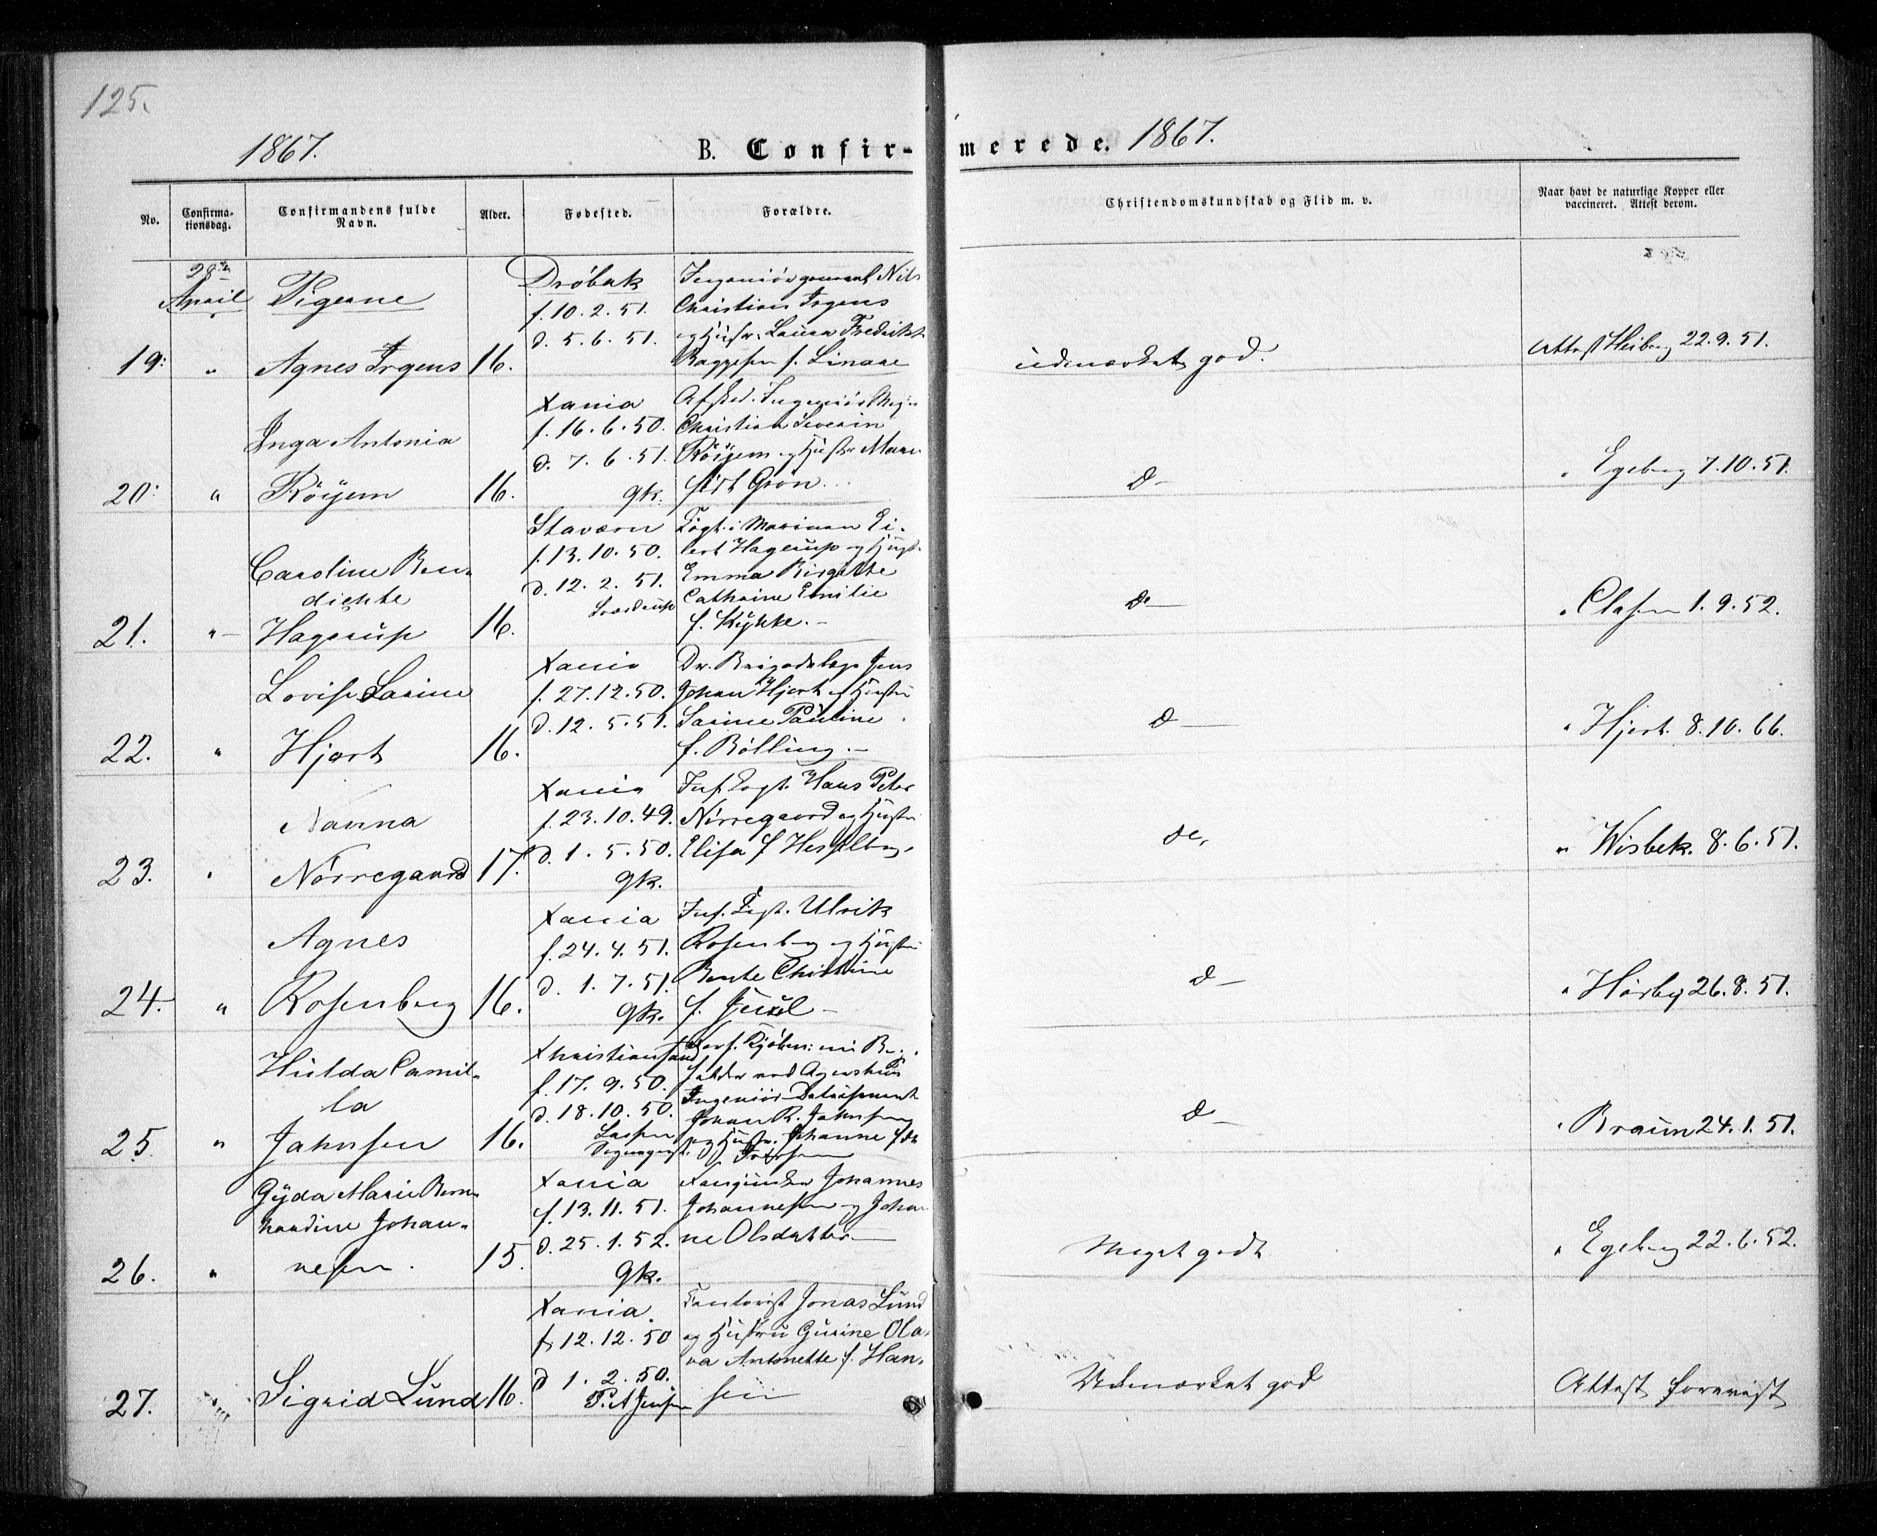 125.
1867.
B. Confir-
merede. 1867.
No.
Confirma-
tionsdag.
Confirmandens fulde
Navn.
Alder.
Fødested.
Forældre.
Christendomskundskab og Flid m. v.
Naar havt de naturlige Kopper eller
vaccineret. Attest derom.
28de
April
Pigerne
19.
"
Agnes Irgens
16.
Dröbak
f. 10. 2. 51.
d. 5. 6. 51.
Ingeniörgeneral Nils
Christian Irgens
og Hustr. Laura Fredrikke
f. Linaae
udmærket god.
Attest Heiberg 22.9.51.
20.
"
Inga Antonia
Röyem
16.
Xania
f. 16. 6. 50.
d. 7. 6. 51.
gk.
Afsked. Ingeniör
Christian Severin
Röyem og Hustr Mar
Grön
d-
" Egeberg 7.10.51.
21.
"
Caroline Ben-
dichte
Hagerup
16.
Staværn
f. 13. 10. 50.
d. 12. 2. 51.
Sverdrup
Logt. i Marinen Ei-
lert Hagerup og Hust.
Emma Birgitte
Cathrine Emilie
f. Kykke.
do
" Clasen 1.9.52.
22.
"
Lovise Sarine
Hjort
16.
Xania
f. 27. 12. 50.
d. 12. 5. 51.
Dr. Brigadelæge Jens
Johan Hjort og Hustru
Sarine Pauline
f. Bölling.
d
" Hjort. 8.10.66.
23.
"
Nanna
Nörregaard
17.
Xania
f. 23. 10. 49.
d. 1. 5. 50.
gk.
Inf. Logt. Hans Peter
Nörregaard og Hustru
Elisa f Hesselberg.
do,
" Wisbek. 8.6.51.
24.
"
Agnes
Rosenberg
16.
Xania
f. 24. 4. 51.
d. 1. 7. 51.
gk.
Inf. Logt. Ulrik
Rosenberg og Hustru
Bente Christine
f. Juul
d-
" Hörbye 26.8.51.
25.
"
Hulda Camil-
la
Jahnsen
16.
Xhristiansand
f. 17. 9. 50.
d. 18. 10. 50.
Lassen
ved Agershuus
Ingeniör Detaisement
Johan R. Jahnsen
og Hustr. Johanne
d-
" Braun 24.1.51.
26.
"
Gyda Marie Bern-
hardine Johan-
nesen.
15.
Xania
f. 13. 11. 51.
d. 25. 1. 52.
gk.
Johannes
Johannesen og Johan
ne Olsdatter
Meget godt
" Egeberg 22.6.52.
27.
Sigrid Lund
16.
Xania.
f. 12. 12. 50
d 1. 2. 50.
P. A Jensen
Kontorist Jonas Lund
og Hustru Gurine Ola-
va Antonette f. Han-
sen
Udmærket god
Attest forevist